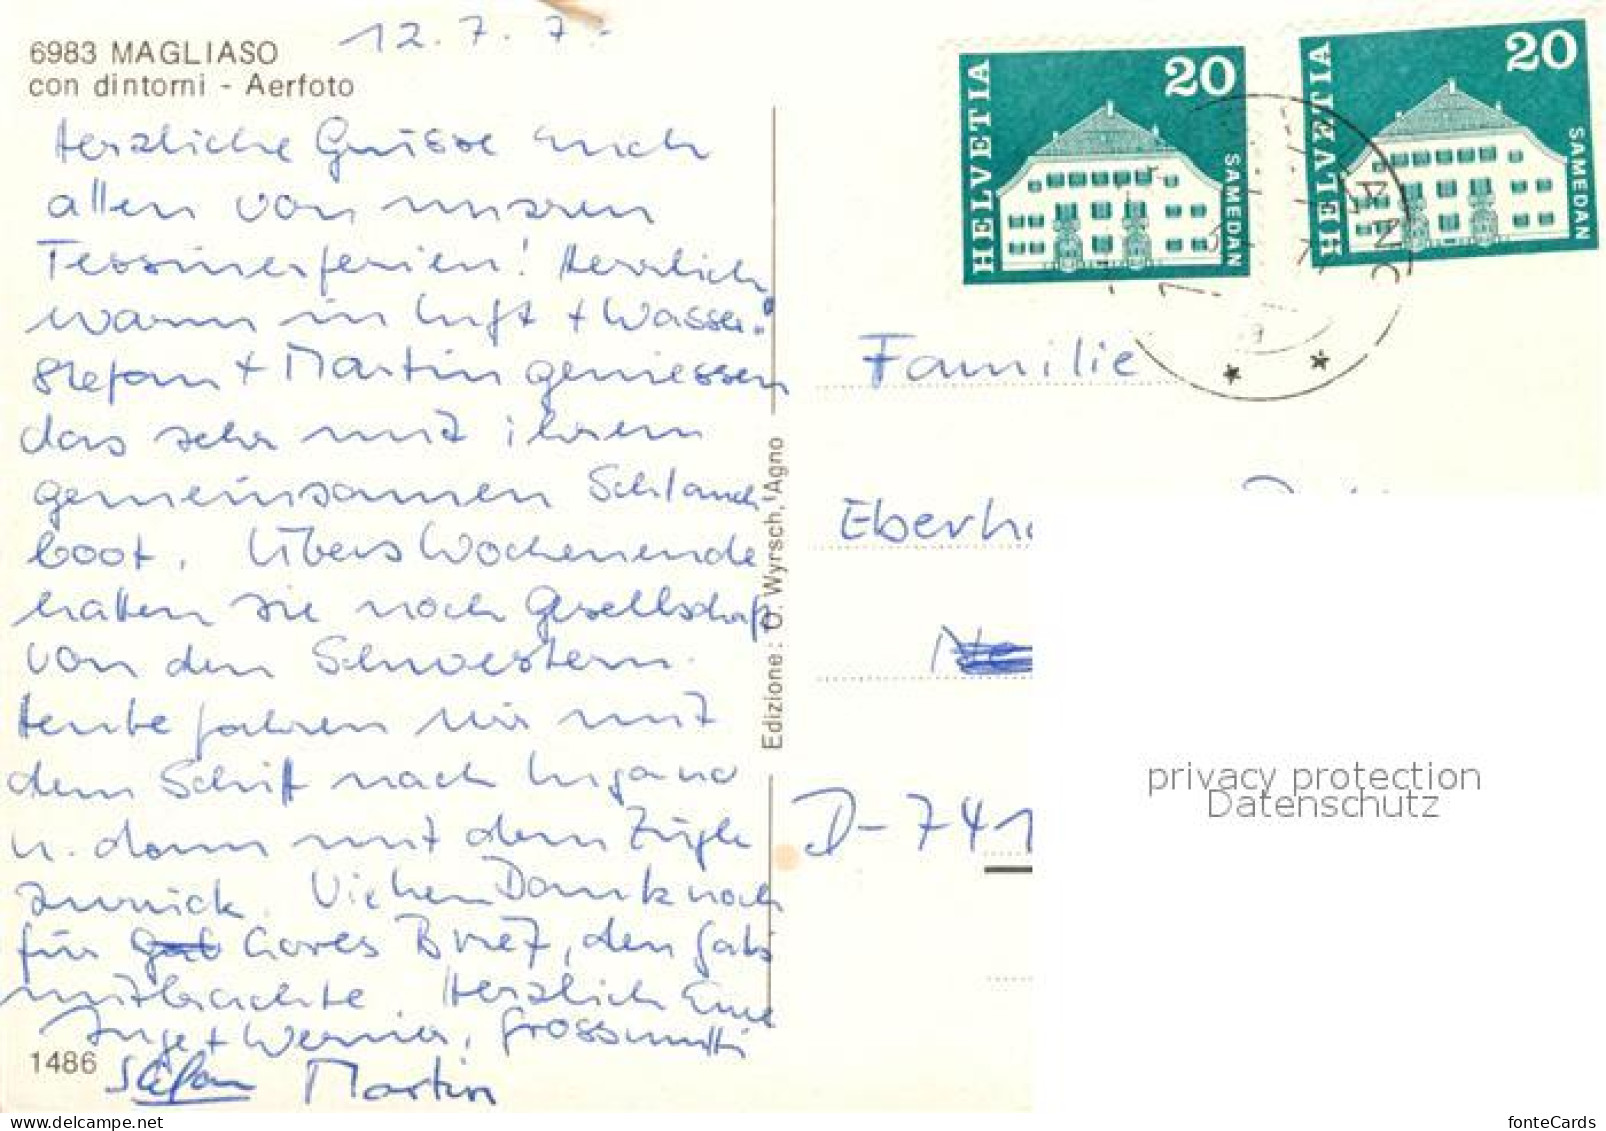 12.7.7
6983 MAGLIASO
con dintorni - Aerfoto
Herzliche Grüsse Euch
allen von unseren
Tessinerferien! Herrlich
warm in Luft + Wasser.
Stefan + Martin geniessen
das sehr mit ihrem
gemeinsamen Schlauch
boot. Übers Wochenende
hatten sie noch Gesellschaft
von den Schwestern.
Heute fahren wir mit
dem Schiff nach Lugano
u. dann mit dem Zügle
zurück. Vielen Dank noch
für Brief, den Gabi
mitbrachte. Herzlich Eure
Inge + Werner, Grossmutti
Stefan Martin
1486
Edizione: O. Wyrsch, Agno
HELVETIA 20 SAMEDAN
HELVETIA 20 SAMEDAN
Familie
Eberh
Ne
D-741
privacy protection
Datenschutz
www.delcampe.net
fonteCards